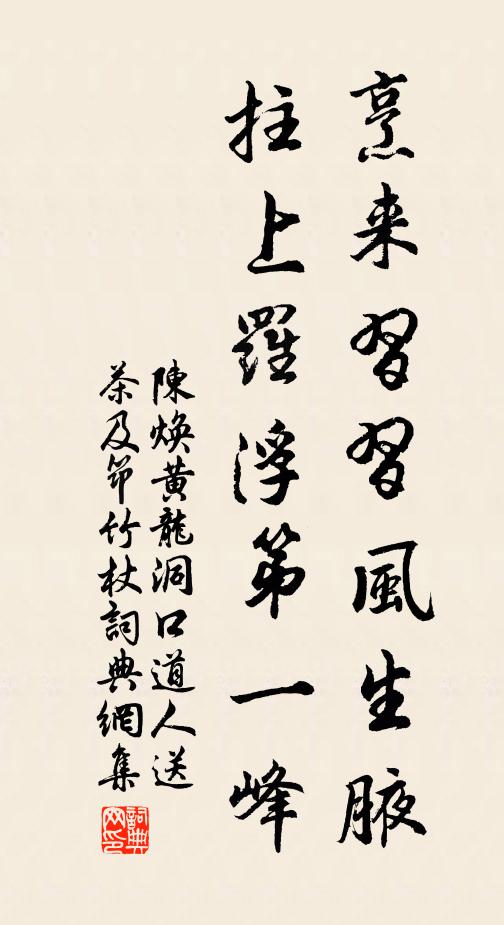 烹来習習風生腋
拄上羅浮第一峰
陳煥黄龍洞口道人送
茶及笻竹杖詞典網集
詞典网印